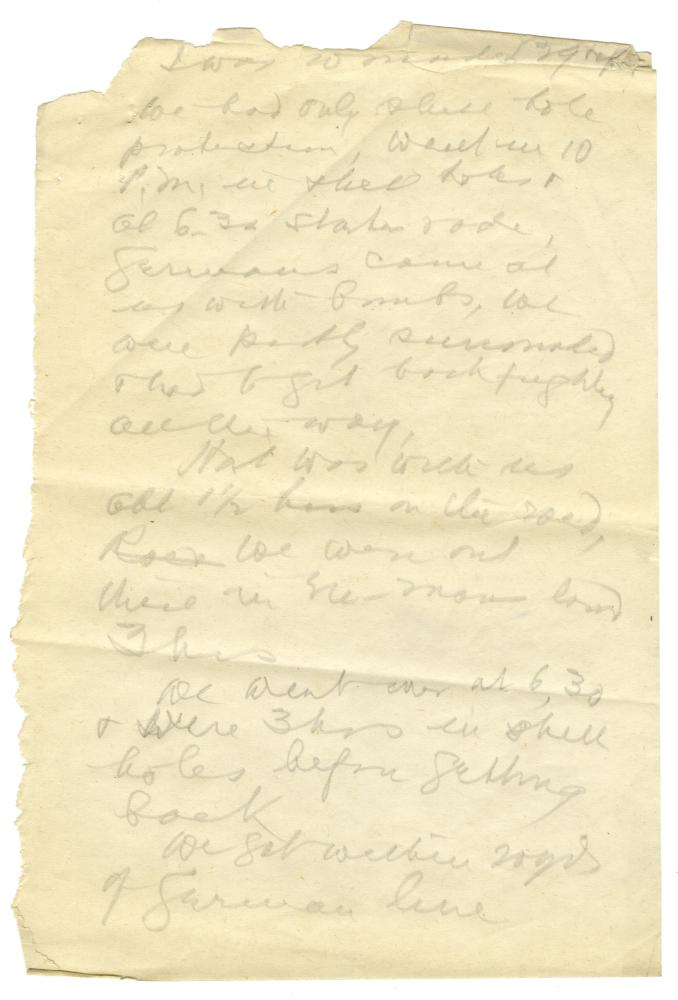 I was wounded 29
we had only shell hole
protection, went in 10
P.M. in shell holes &
at 6-30 rode,
Germans came at
us with bombs, we
were partly surrounded
& had to get back fighting
all the way,
Hat was with us
abt 1½ hrs on the road,
we were out
there in No-mans land
3 hrs
We went over at 6,30
& were 3 hrs in shell
holes before getting
back
We got within 20 yds
of German line